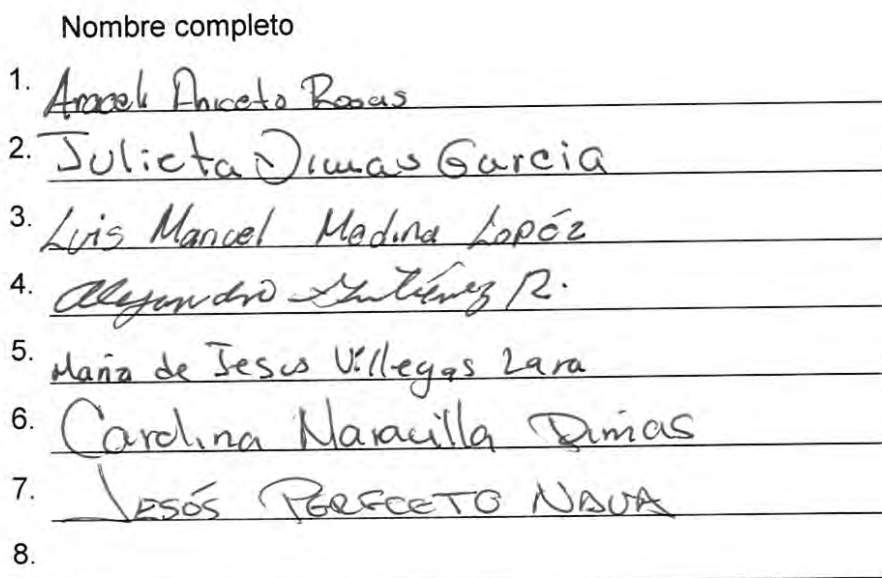 Nombre completo
1. Araceli Aniceto Rosas
2. Julieta Dimas Garcia
3. Luis Manuel Medina Lopéz
4. Alejandro Gutiérrez R.
5. Maria de Jesus Villegas Lara
6. Carolina Maravilla Dimas
7. JESÓS PERFECTO NAVA
8.